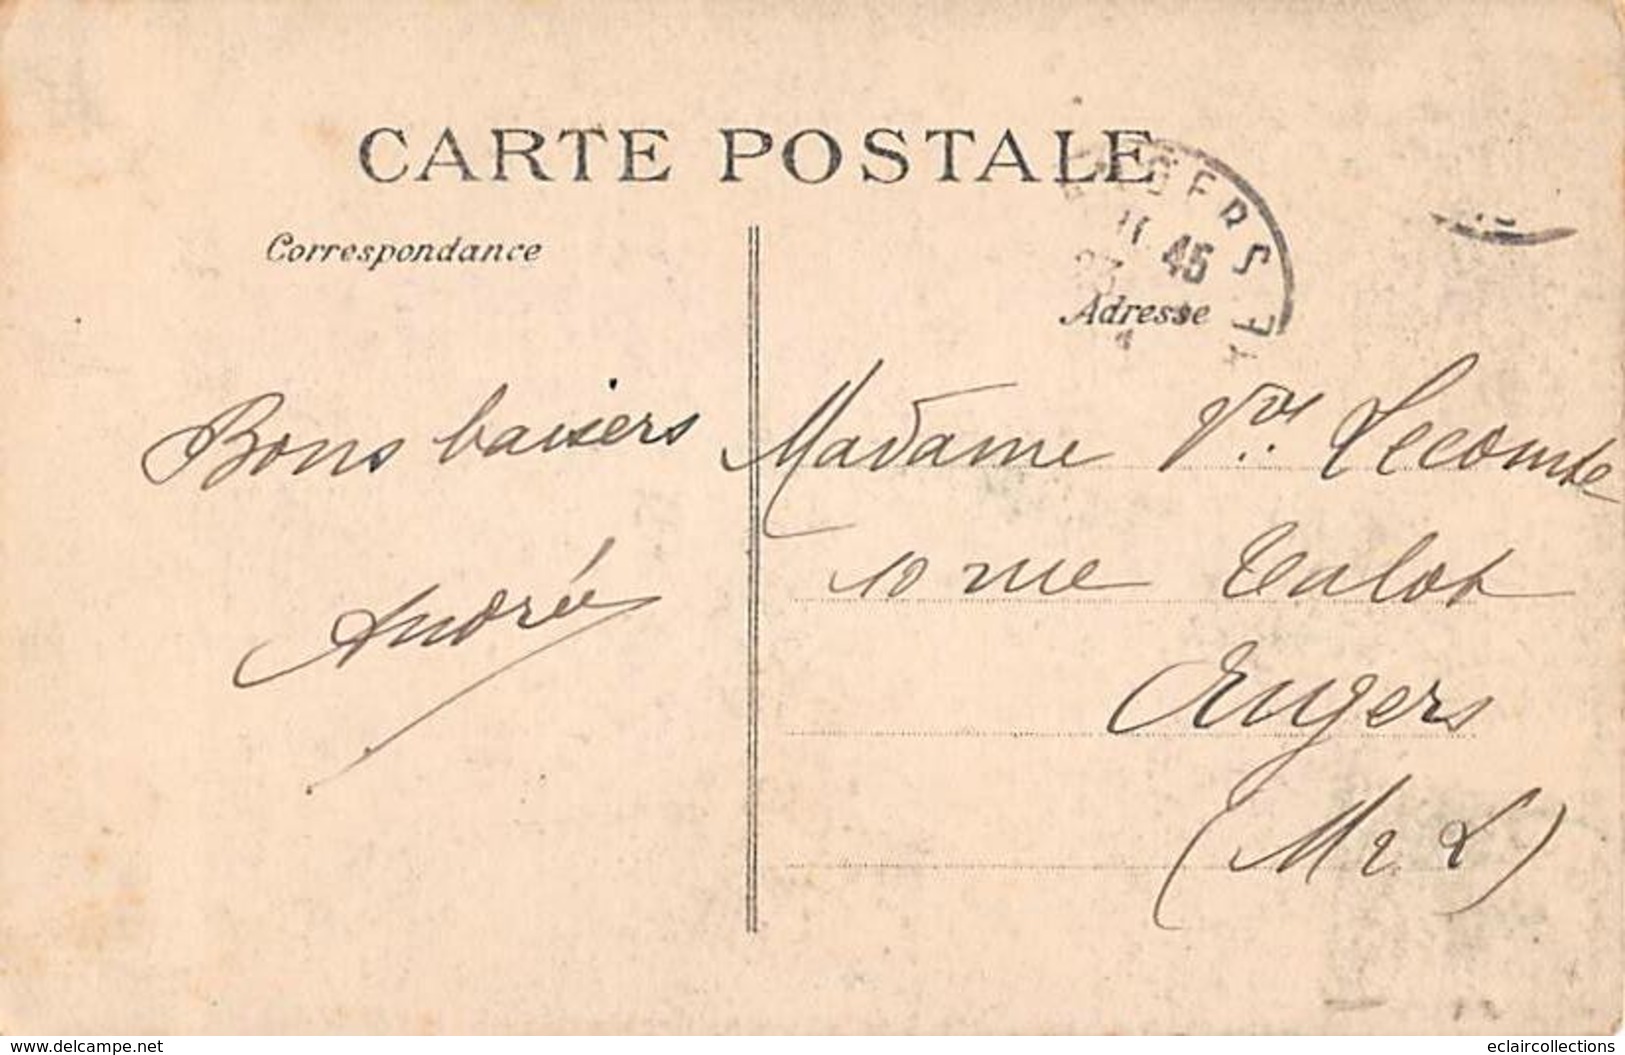 CARTE POSTALE
ANGERS
11 45
Correspondance
Adresse
Bons baisers
André
Madame Lecomte
10 rue Talot
Angers
(M & L)
www.delcampe.net
eclaircollections